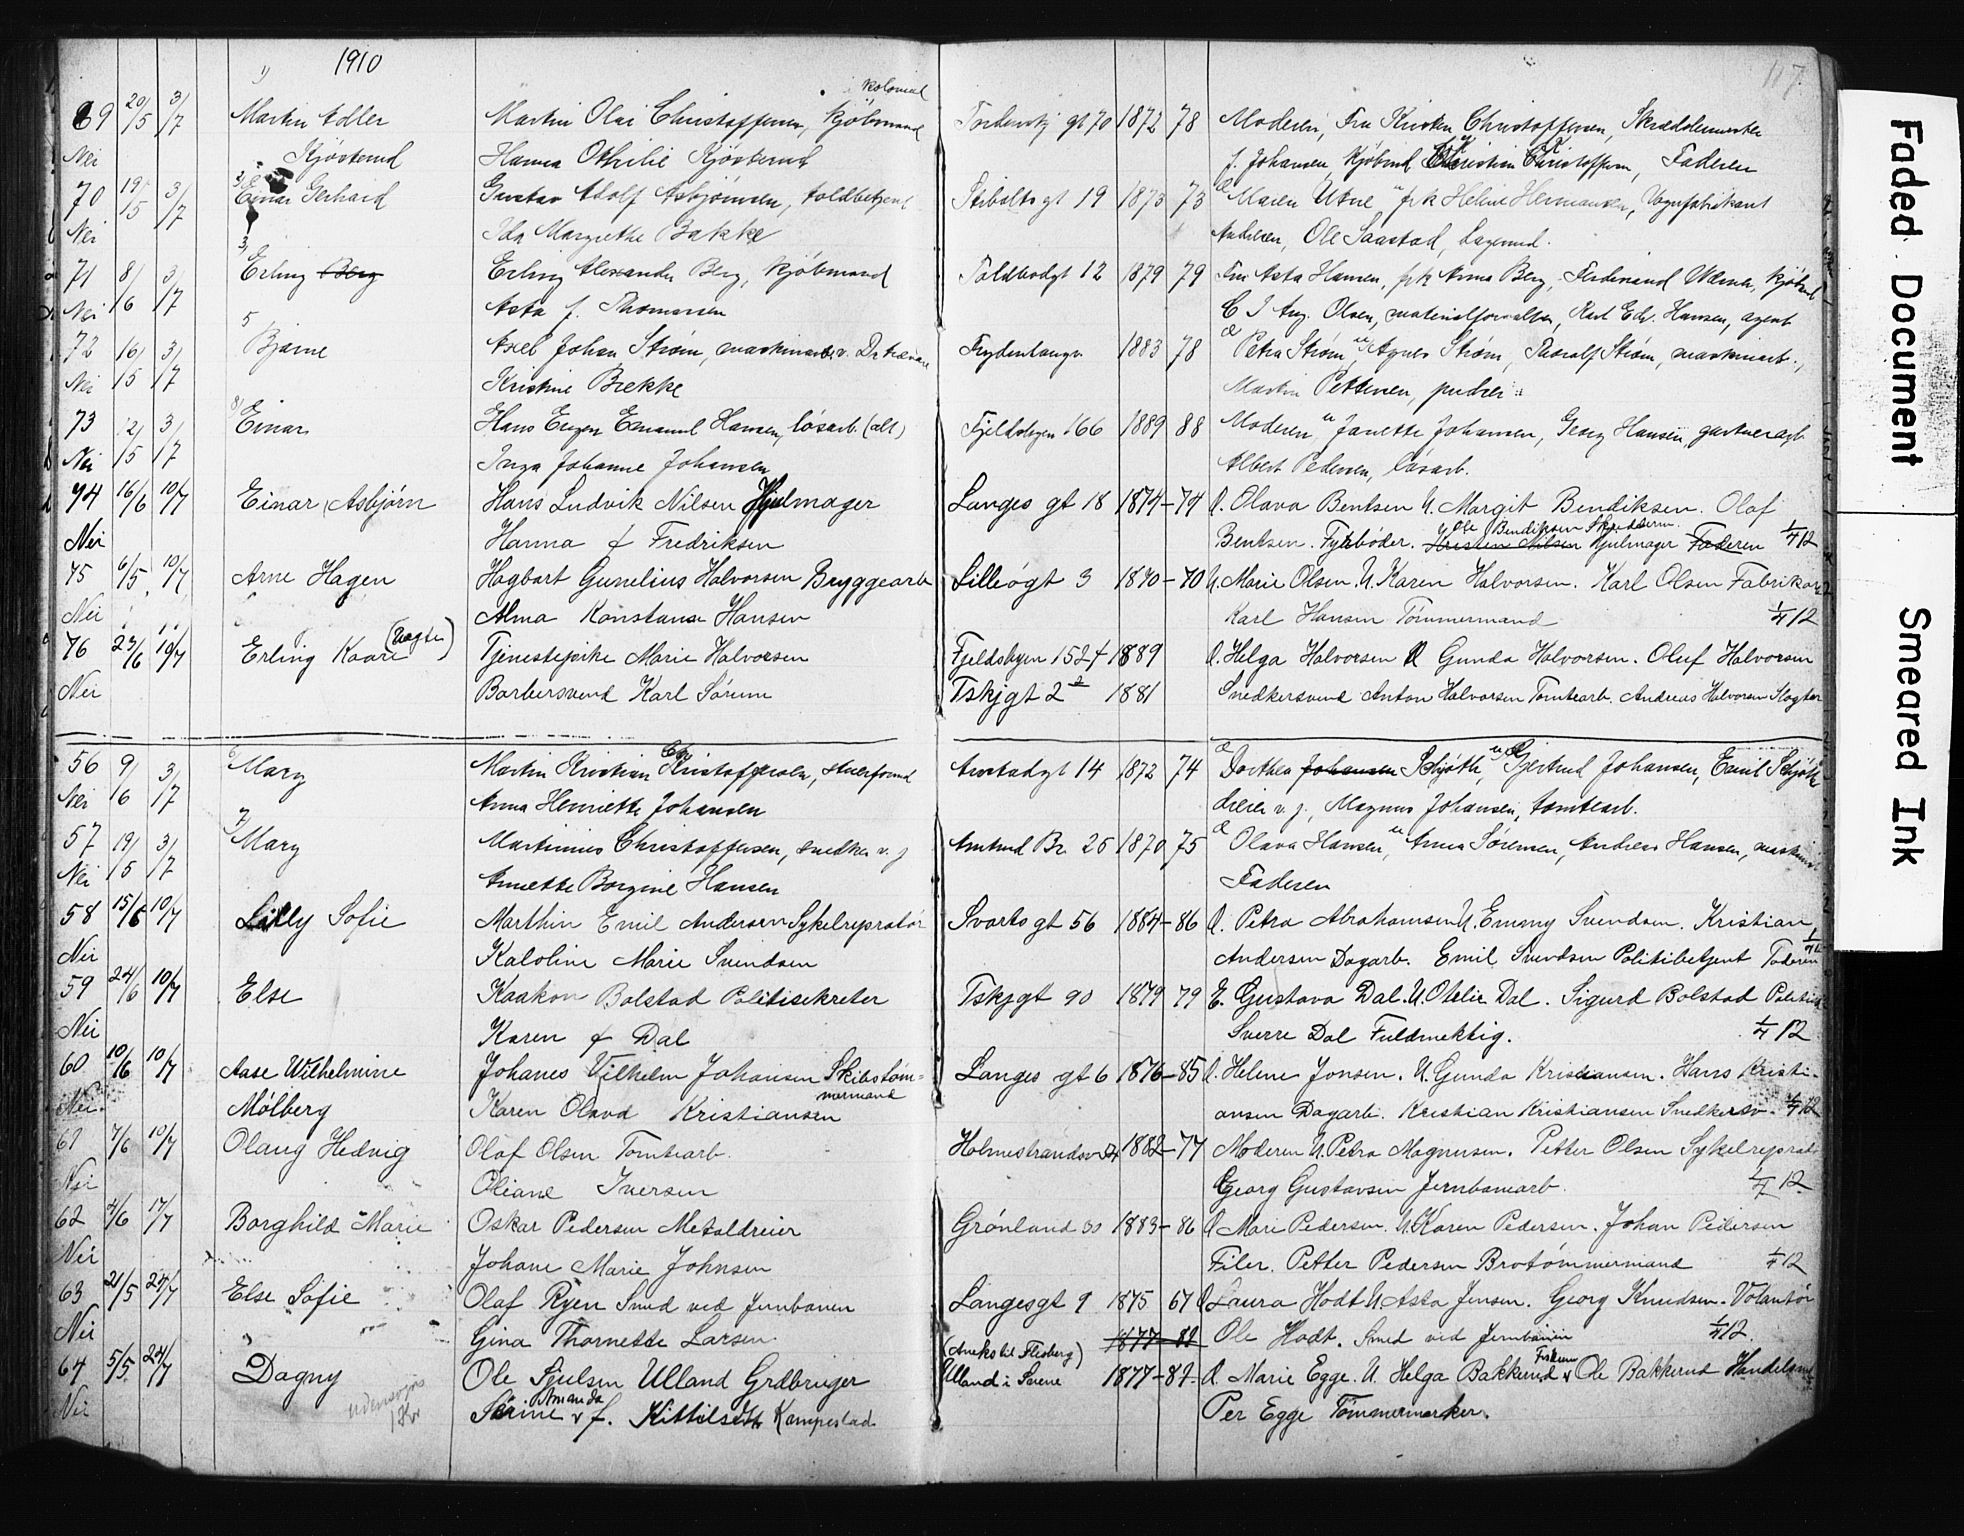 1910
117.
Kolonial
69 20/5 3/7 1) Martin Adler Martin Olai Christoffersen, Kjöbmand Tordenskj gt 70 1872 78 Moderen, Fru Kirsten Christoffersen, Skræddermester
Nei Kjösterud Hanna Othilie Kjösterud J. Johansen, Kjöbmd Kristian Christoffersen, Faderen
70 19/5 3/7 Einar Gerhard Gustav Adolf Asbjörnsen, toldbetjent Stibolts gt 19 1873 73 Maren Utne frk Heline Hermansen, Vognfabrikant
Nei Ida Margrethe Bakke Andresen, Ole Saastad, Lagermd.
71 8/6 3/7 3) Erling Berg Erling Alexander Berg, Kjöbmand Toldbodgt 12 1879 79 Fru Asta Hansen, frk Anna Berg, Ferdinand Werner, Kjöbmd
Nei Asta f. Thomassen C J Aug. Olsen, materialforvalter, Karl Edv. Hansen, agent
72 16/5 3/7 5 Bjarne Axel Johan Ström, maskinarb. v. Dr trævare Frydenlungv. 1883 78 Petra Ström Agnes Ström, Thoralf Ström, maskinarb.,
Nei Kristine Brekke Martin Pettersen, pudser
73 12/5 3/7 8) Einar Hans Eugen Emanuel Hansen, lösarb. (alt) Fjeldsbyen 166 1889 88 Moderen, Janette Johansen, Georg Hansen gartnerarb.
Nei Inga Johanne Johansen Albert Pedersen, lösarb.
74 16/6 10/7 Einar Asbjörn Hans Ludvik Nilsen Hjulmager Langes gt 18 1874-74 Olava Bentsen U. Margit Bendiksen. Olaf
Ole Bendiksen Skrædderm.
Nei Hanna f Fredriksen Bentsen. Fyrböder. Kristen Nilsen Hjulmager Faderen 1/4 12
75 6/5 10/7 Arne Hagen Hagbart Gunelius Halvorsen Bryggearb Lilleögt 3 1870-70 U. Marie Olsen. U. Karen Halvorsen. Karl Olsen Fabrikar
Nei Alma Konstanse Hansen Karl Hansen Tömmermand 1/4 12
76 23/6 10/7 Erling Kaare (uægte) Tjenestepike Marie Halvorsen Fjeldsbyen 152 f 1889 Helga Halvorsen Gunda Halvorsen. Oluf Halvorsen
Nei Barbersvend Karl Sörum Tskjgt 2 1881 Snedkersvend Anton Halvorsen Tomtearb. Andreas Halvorsen Slogter
56 9/6 3/7 6) Mary Martin Kristian Kristoffersen, stuerformd Arvstadgt 14 1872 74 Dorthea Johansen Schjöth, Gjertrud Johansen, Emil Schjöth
Nei Anna Henriette Johansen dreier v. j., Magnus Johansen, tomtearb.
57 19/5 3/7 7) Mary Martinius Christoffersen, snedker v. j Amtmd Bl. 25 1870 75 Olava Hansen, Anna Sörensen, Andreas Hansen, maskin
Nei Annette Borgine Hansen Faderen
58 15/6 10/7 Lilly Sofie Marthin Emil Andersen Sykelrepratör Svarts gt 56 1884-86 Petra Abrahamsen U. Emmy Svendsen. Kristian
Nei Kaloline Marie Svendsen Andersen Dagarb. Emil Svendsen Politibetjent Faderen
59 24/6 10/7 Else Haakon Bolstad Politisekretær Tskjgt 90 1879 79 E. Gustava Dal. U. Otelie Dal. Sigurd Bolstad Politi
Nei Karen f Dal Sverre Dal Fuldmektig. 1/4 12
60 10/6 10/7 Aase Wilhelmine Johanes Vilhelm Johansen Skibstöm- Langes gt 6 1876-85 Helene Jonsen. U. Gunda Kristiansen. Hans Kristi-
mermand
Nei. Mölberg Karen Olava Kristiansen ansen Dagarb. Kristian Kristiansen Snedkersv. 1/4 12
61 7/6 10/7 Olaug Hedvig Olaf Olsen Tomtearb. Holmestrandsv 1882-77 Moderen U. Petra Magnusen. Petter Olsen Sykelreprat
Nei Oliane Iversen Georg Gustavsen Jernbanearb. 1/4 12.
62 7/6 17/7 Borghild Marie Oskar Pedersen Metaldreier Grönland 30 1883-86 Mari Pedersen. U. Karen Pedersen. Johan Pedersen
Nei Johane Marie Johnsen Filer. Petter Pedersen Brotömmermand 1/4 12
63 21/5 24/7 Else Sofie Olaf Ryen Smed ved Jernbanen Langesgt 9 1875 67 Laura Hodt U Asta Jensen. Georg Knudsen. Volantör
Nei Gina Thornette Larsen 1877-82 Ole Hodt. Smed ved Jernbanen 1/4 12.
(Aneks til Flesberg)
64 5/5. 24/7 Dagny Ole Sjulsen Ulland Grdbruger Ulland i Svene 1877-82. Marie Egge. U. Helga Bakkerud Ole Bakkerud Handelsm
Nei Amanda
Serine f. Kittilseth Kampestad Per Egge Tömmermerker.
Faded Document
Smeared Ink